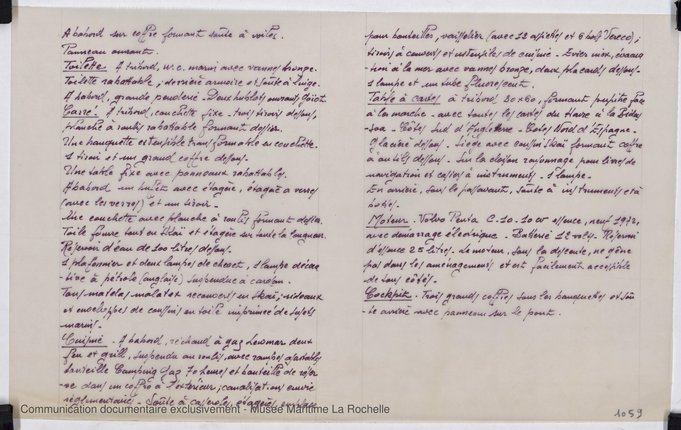 A babord sur coffre formant soute à voiles.
Panneau ouvrant.
Toilette. A tribord, w.c. marin avec vannes bronze.
Toilette rabattable, derrière armoire et soute à linge.
A babord, grande penderie. Deux hublots ouvrants
Carré. A tribord, couchette fixe - trois tiroirs dessous,
planche à roulis rabattable formant dossier.
Une banquette extensible transformable en couchette.
1 tiroir et un grand coffre dessous.
Une table fixe avec panneaux rabattables.
A babord un buffet avec étagère, étagère à verres
(avec les verres) et un tiroir.
Une couchette avec planche à roulis formant dossier.
Toile fourre tout en skaï et étagère sur toute la longueur.
Réservoir d'eau de 100 litres dessous.
1 plafonnier et deux lampes de chevet, 1 lampe décora
-tive à pétrole (anglaise) suspendue à cardan.
Tous matelas recouverts en skaï, rideaux
et enveloppes de coussins en toile imprimée de sujets
marins.
Cuisine. A babord, réchaud à gaz deux
feu et grill, suspendu au roulis, avec rambes ajustables
bouteille Camping Gaz et bouteille de réser
-ve dans un coffre à l'extérieur; canalisations cuivre
réglementaire. Soute à casseroles, étagères,
pour bouteilles, vaisselier (avec 12 assiettes et 6 bols);
tiroirs à couverts et ustensiles de cuisine. Evier inox, évacua
-tion à la mer avec vannes bronze, deux placards dessous.
1 lampe et un tube fluorescent.
Table à cartes à tribord 80x60, formant pupitre face
à la marche - avec toutes les cartes du Havre à la Bidas
-soa. Côtes Sud d'Angleterre - Côtes Nord d'Espagne.
Glacière dessous. Siège avec coussin skaï formant coffre
à outils dessous. Sur la cloison rayonnage pour livres de
navigation et casiers à instruments. 1 lampe.
En arrière, sous le passavant, soute à instruments et à
bottes.
Moteur. Volvo Penta C.10. 10 CV essence, neuf 1972,
avec démarrage électrique. Batterie 12 volts. Réservoir
d'essence 25 litres. Le moteur, sous la descente, ne gêne
pas dans les aménagements et est facilement accessible
de tous côtés.
Cockpit. Trois grands coffres sous les banquettes et sou
-te arrière avec panneau sur le pont.
Communication documentaire exclusivement - Musée Maritime La Rochelle
1059